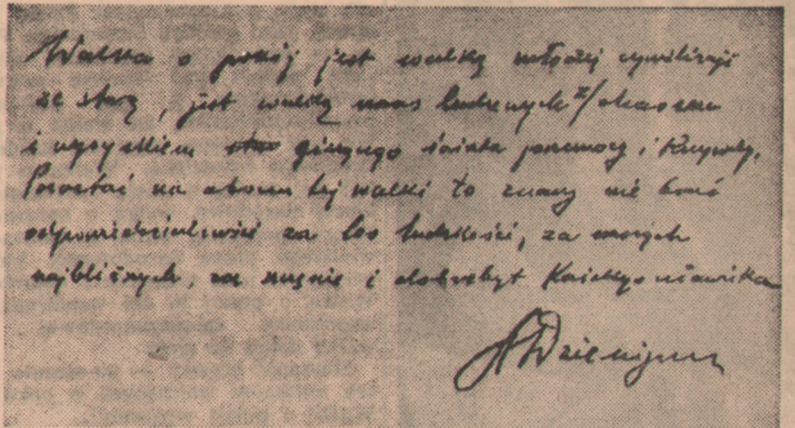 Walka o pokój jest walką młodej cywilizacji
ze starą, jest walką mas ludzkich z
i wyzyskiem ginącego świata przemocy i krzywdy.
Pozostać na uboczu tej walki to znaczy nie brać
odpowiedzialności za los ludzkości, za swoich
najbliższych, za szczęście i dobrobyt każdego człowieka